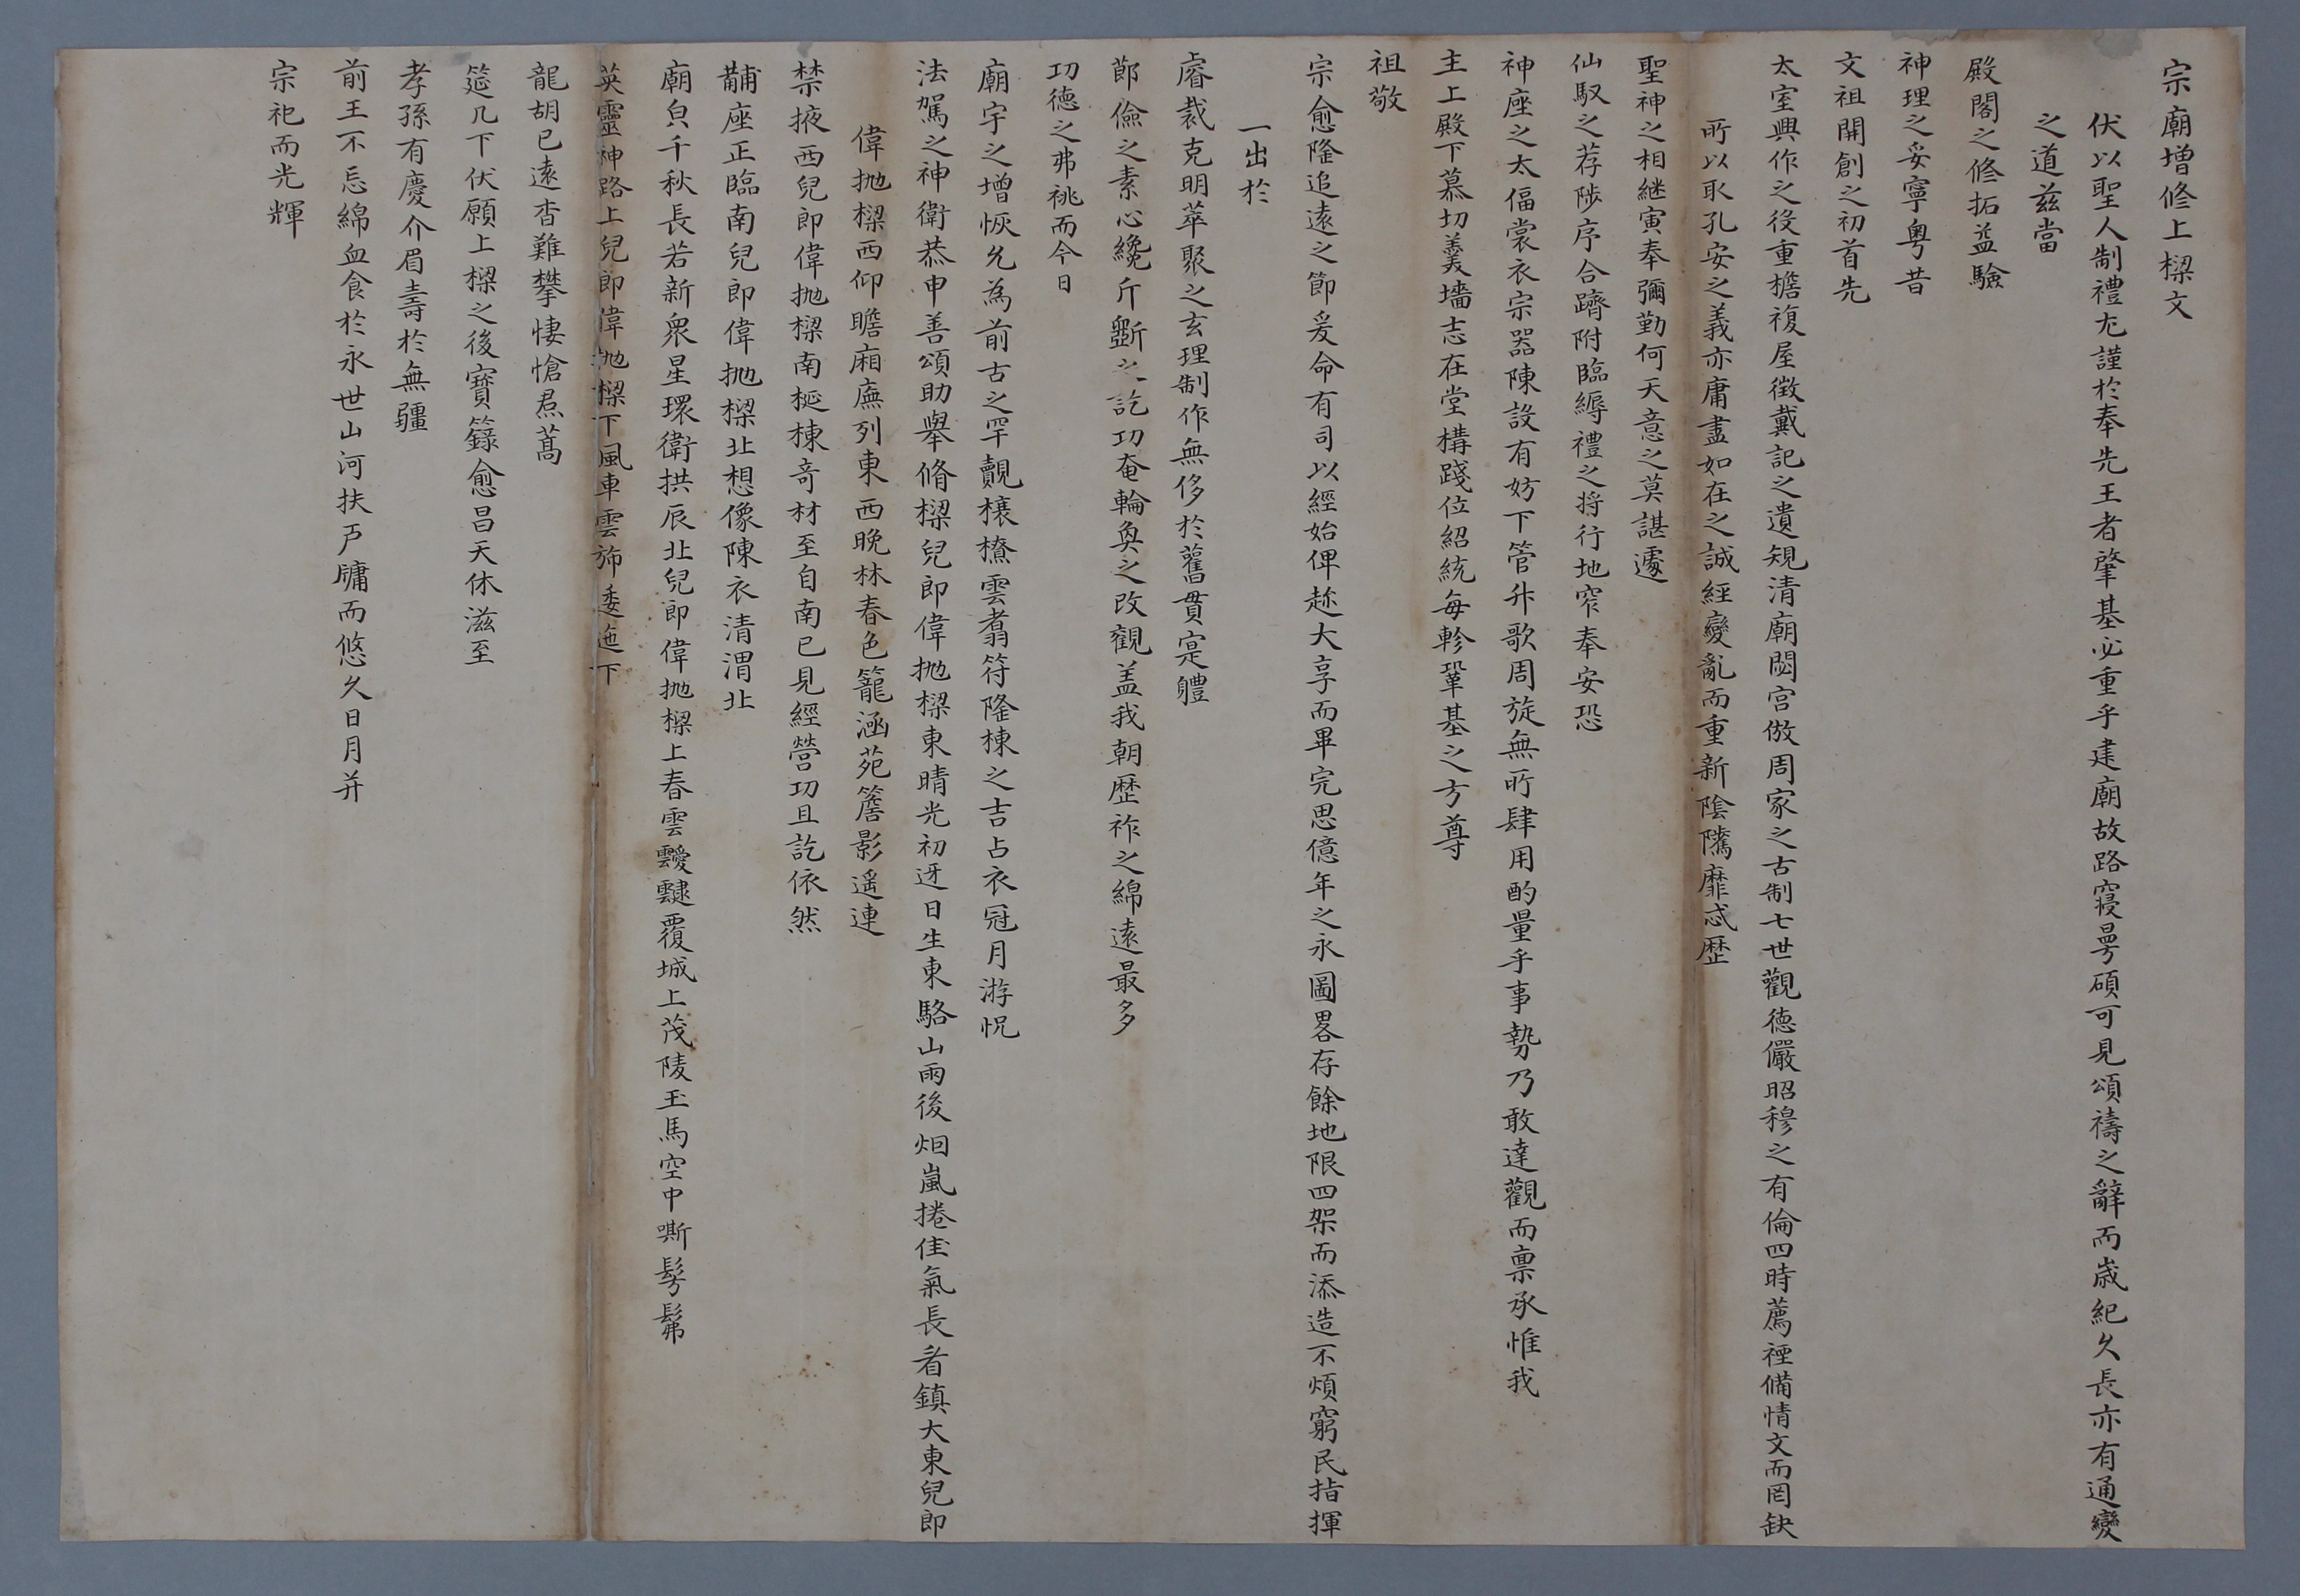 宗廟增修上樑文
伏以聖人制禮尤謹於奉先王者肇基必重乎建廟故路寢曼碩可見頌禱之辭而歲紀久長亦有通變
之道茲當
殿閣之修拓益驗
神理之妥寧粤昔
文祖開創之初首先
太室興作之役重檐複屋徵戴記之遺規清廟閟宮倣周家之古制七世觀德儼昭穆之有倫四時薦禋備情文而罔缺
所以取孔安之義亦庸盡如在之誠經變亂而重新陰隲靡忒歷
聖神之相継寅奉彌勤何天意之莫諶遽
仙馭之荐陟序合躋附臨縟禮之将行地窄奉安恐
神座之太偪裳衣宗器陳設有妨下管升歌周旋無所肆用酌量乎事勢乃敢達觀而禀承惟我
主上殿下慕切羹墻志在堂構踐位紹統每軫鞏基之方尊
祖敬
宗愈隆追遠之節爰命有司以經始俾趂大享而畢完思億年之永圖畧存餘地限四架而添造不煩窮民指揮
一出於
睿裁克明萃聚之玄理制作無侈於舊貫寔軆
節儉之素心纔斤斲之訖功奄輪奐之改觀盖我朝歷祚之綿遠最多
功德之弗祧而今日
廟宇之增恢允為前古之罕覿欀橑雲翥符隆棟之吉占衣冠月游怳
法駕之神衛恭申善頌助舉脩樑兒郎偉抛樑東晴光初迓日生東駱山雨後烟嵐捲佳氣長看鎮大東兒郎
偉抛樑西仰瞻廂廡列東西晩林春色籠涵苑簷影遥連
禁掖西兒郎偉抛樑南梴棟竒材至自南已見經營功且訖依然
黼座正臨南兒郎偉抛樑北想像陳衣清渭北
廟皃千秋長若新衆星環衛拱辰北兒郎偉抛樑上春雲靉靆覆城上茂陵玉馬空中嘶髣髴
英靈神路上兒郎偉抛樑下風車雲斾逶迤下
龍胡已遠杳難攀悽愴焄蒿
筵几下伏願上樑之後寶籙愈昌天休滋至
孝孫有慶介眉壽於無疆
前王不忘綿血食於永世山河扶戶牖而悠久日月并
宗祀而光輝